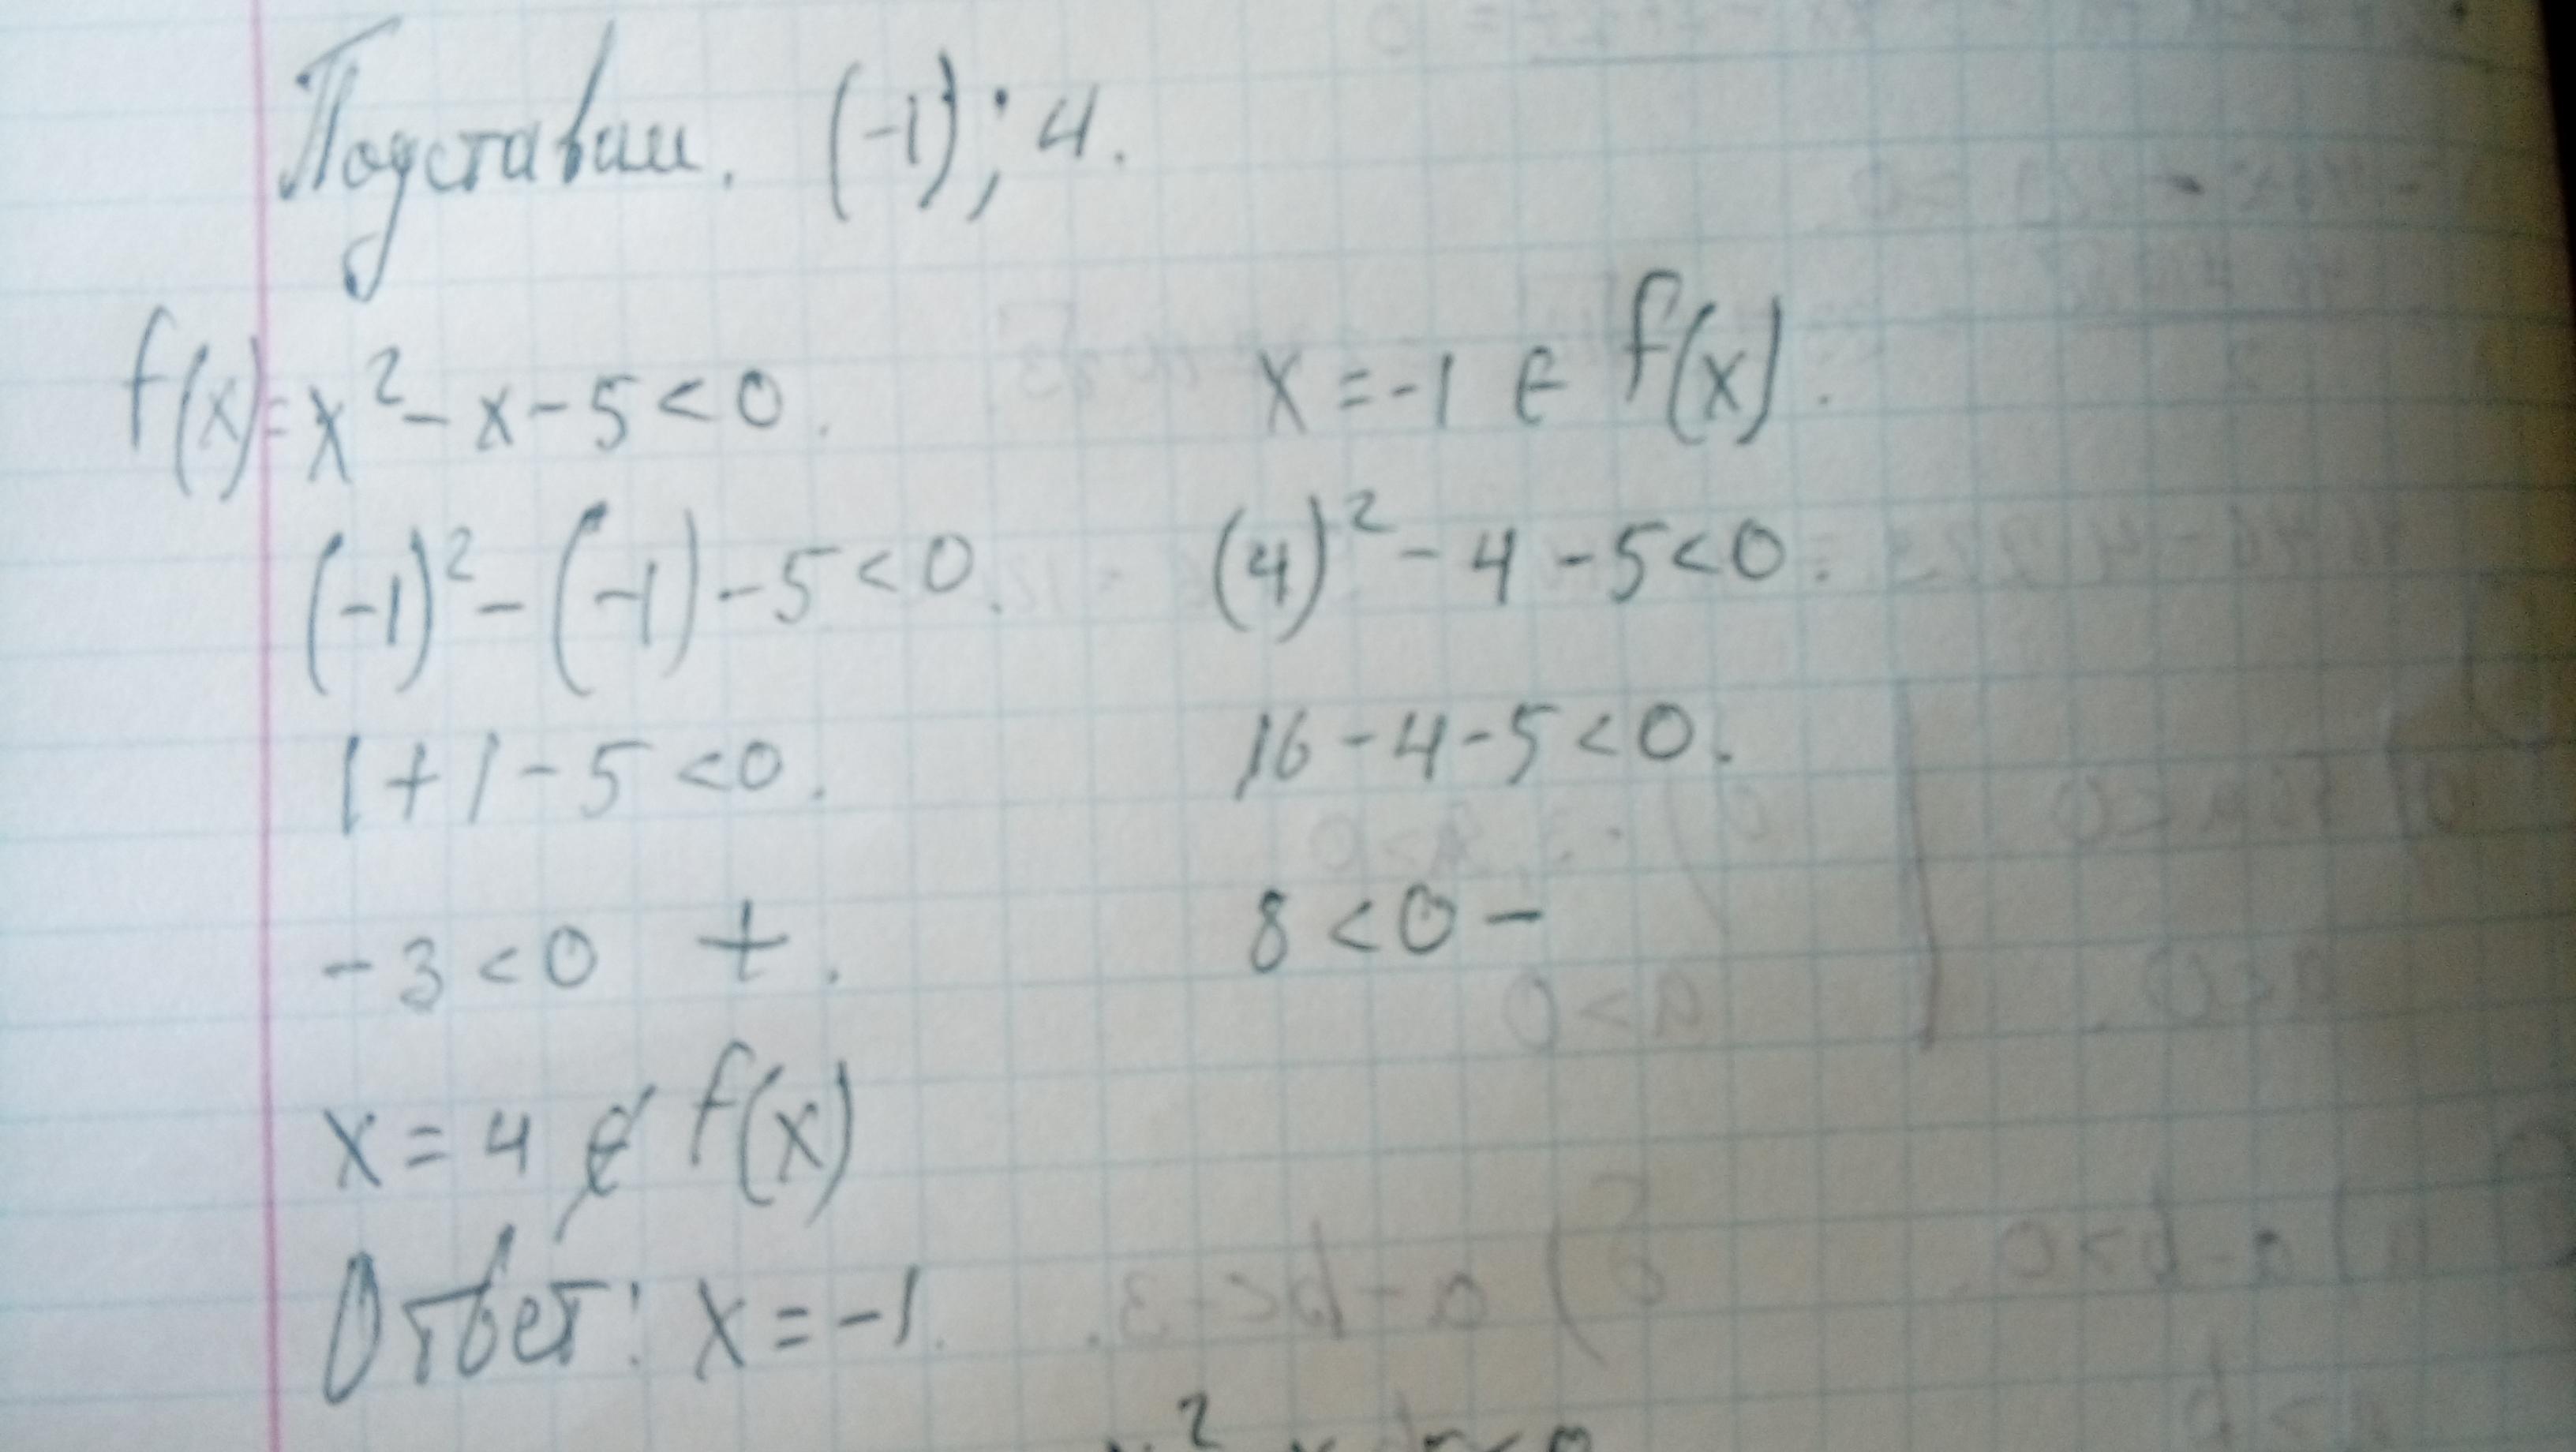 Подставим. (-1); 4.
f(x)=x²-x-5<0.
(-1)²-(-1)-5<0.
1+1-5<0.
-3<0 +.
x=-1 ∈ f(x).
(4)²-4-5<0.
16-4-5<0.
8<0 -
x=4 ∉ f(x)
Ответ: x=-1.